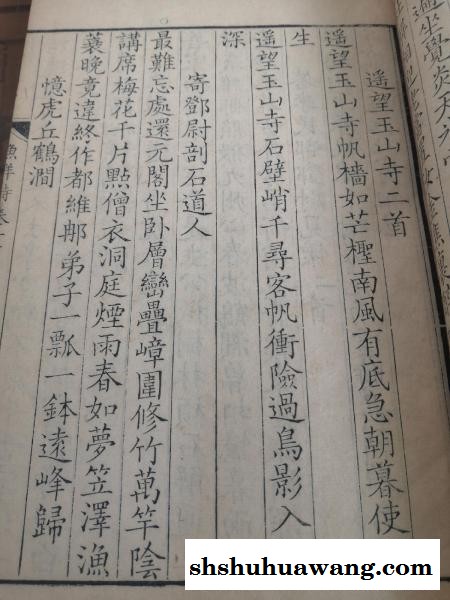 遥望玉山寺二首
遥望玉山寺帆檣如芒檉南風有底急朝暮使
生
遥望玉山寺石壁峭千尋客帆衝險過鳥影入
深
寄鄧尉剖石道人
最難忘處還元閣坐卧層巒疊嶂圍修竹萬竿陰
講席梅花千片點僧衣洞庭煙雨春如夢笠澤漁
蓑晚竟違終作都維那弟子一瓢一鉢遠峰歸
憶虎丘鶴澗
shshuhuawang.com